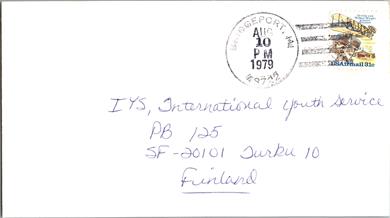 BRIDGEPORT, MI
AUG
10
PM
1979
USAirmail 31c
IYS, International Youth Service
PB 125
SF-20101 Turku 10
Finland